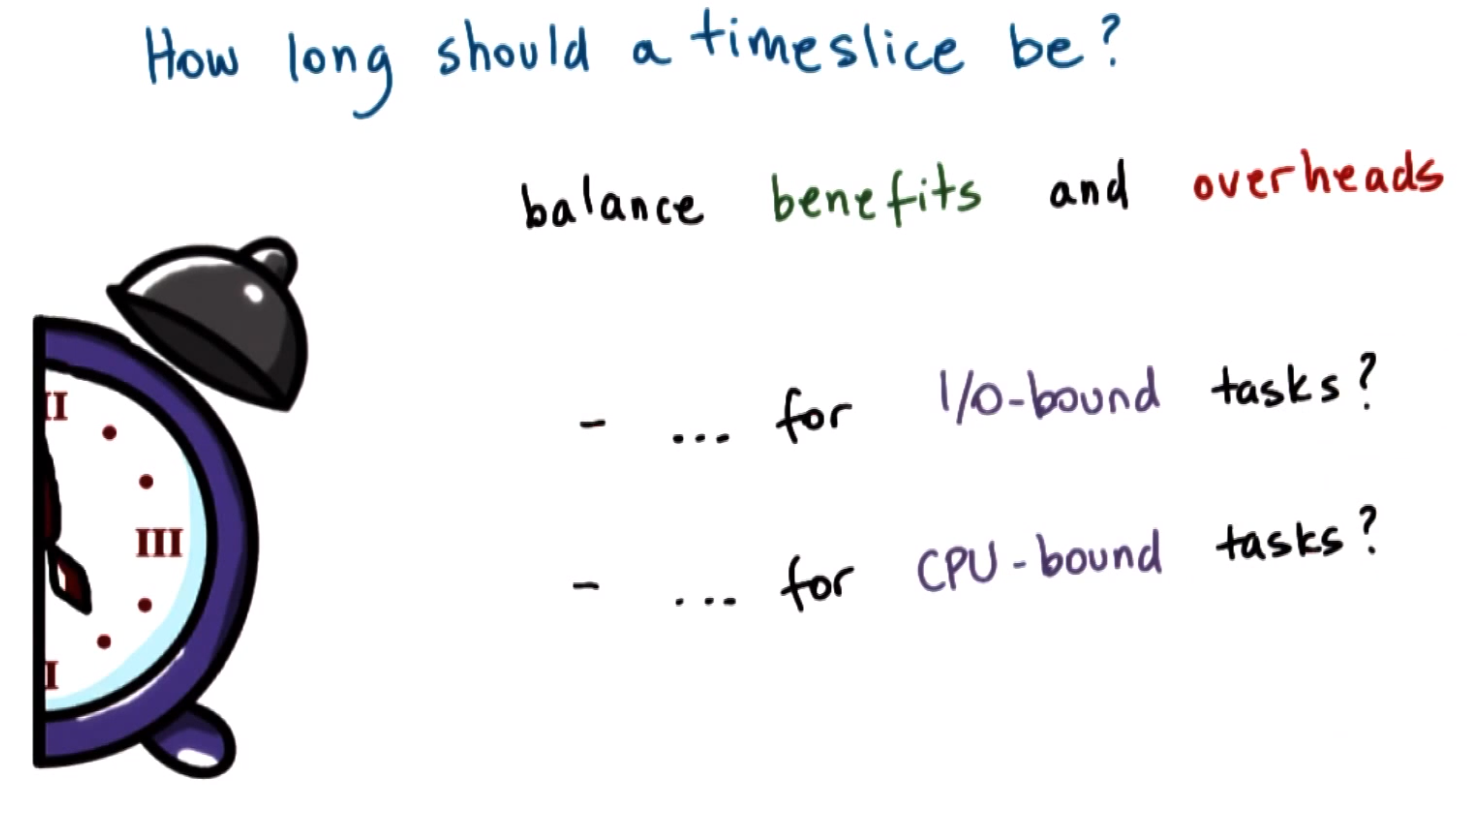 How long should a timeslice be?
balance benefits and overheads
- ... for I/O-bound tasks?
- ... for CPU-bound tasks?
II
III
I